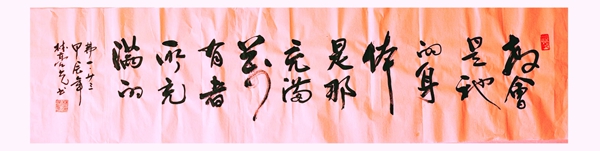 教會
是祂
的身
体
是那
充滿
萬
有者
所充
滿的
弗一·廿三
甲辰年